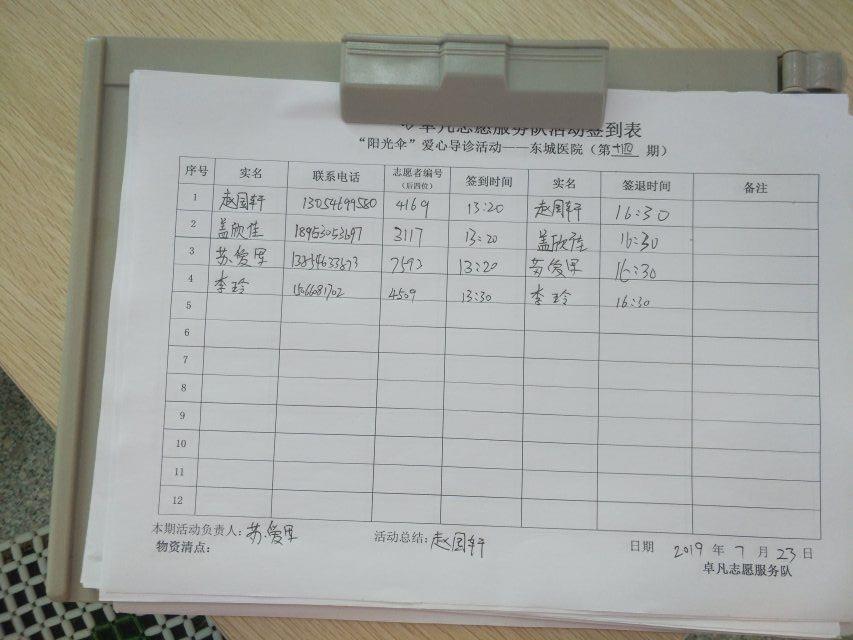 卓凡志愿服务队活动签到表
“阳光伞”爱心导诊活动——东城医院（第十四期）
序号 实名 联系电话 志愿者编号（后四位） 签到时间 实名 签退时间 备注
1 赵国轩 13054699580 4169 13:20 赵国轩 16:30
2 盖欣佳 18953053697 3117 13:20 盖欣佳 16:30
3 苏爱军 7592 13:20 苏爱军 16:30
4 李玲 15066081702 4509 13:30 李玲 16:30
5
6
7
8
9
10
11
12
本期活动负责人：苏爱军 活动总结：赵国轩 日期 2019年7月23日
物资清点： 卓凡志愿服务队